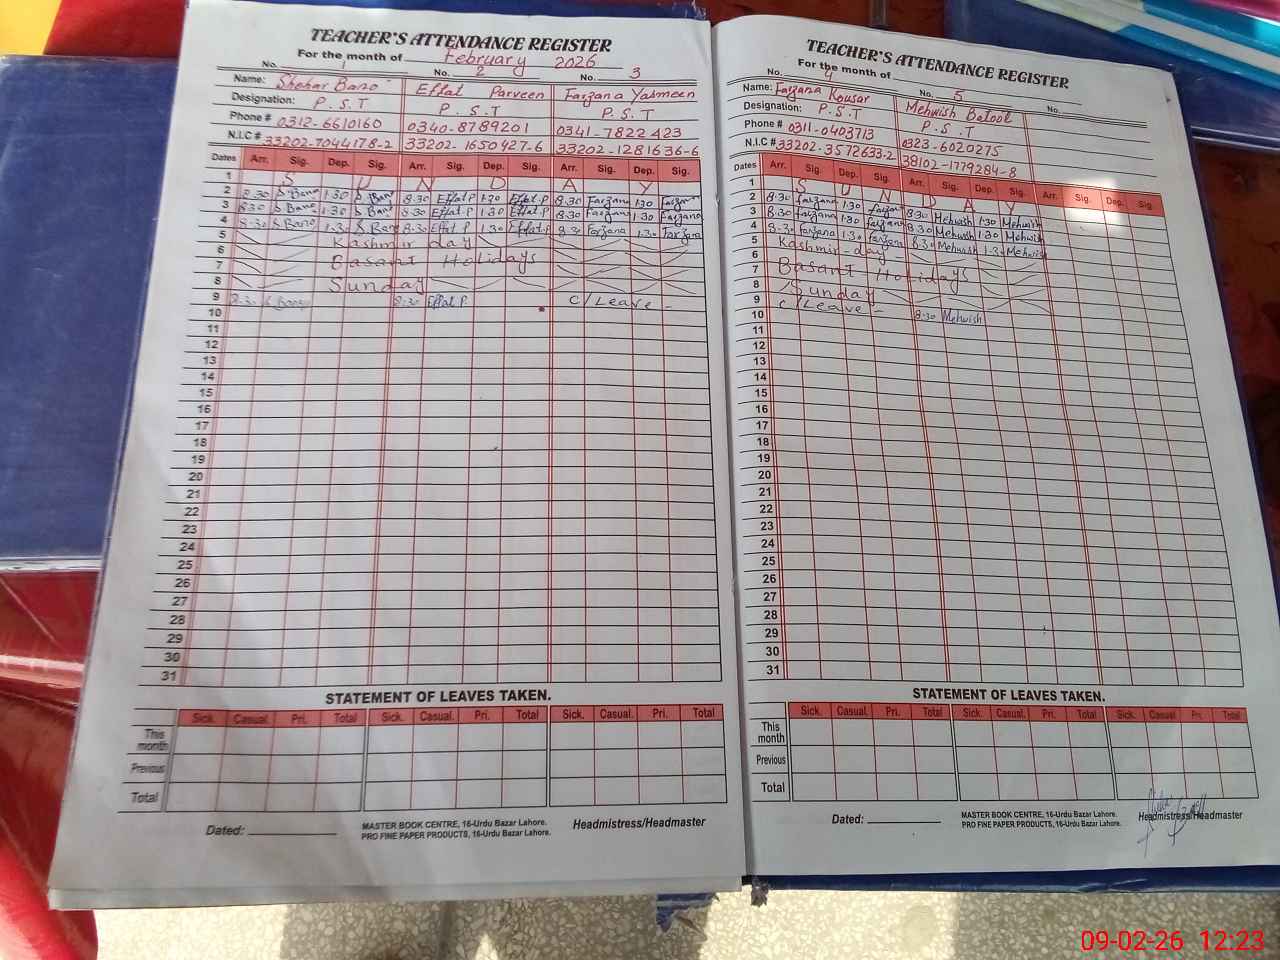 TEACHER'S ATTENDANCE REGISTER
For the month of February 2026
No. 1 No. 2 No. 3
Name: Shehar Bano Effat Parveen Farzana Yasmeen
Designation: P.S.T P.S.T P.S.T
Phone # 0312-6610160 0340-8789201 0341-7822423
N.I.C # 33202-7044178-2 33202-1650927-6 33202-1281636-6
Dates Arr. Sig. Dep. Sig. Arr. Sig. Dep. Sig. Arr. Sig. Dep. Sig.
1 S U N D A Y
2 8.30 S.Bano 1.30 S.Bano 8.30 Effat.P 1.30 Effat.P 8.30 Farzana 1.30 Farzana
3 8.30 S.Bano 1.30 S.Bano 8.30 Effat.P 1.30 Effat.P 8.30 Farzana 1.30 Farzana
4 8.30 S.Bano 1.30 S.Bano 8.30 Effat.P 1.30 Effat.P 8.30 Farzana 1.30 Farzana
5 Kashmir day
6
7 Basant Holidays
8 Sunday
9 8.30 S.Bano 8.30 Effat P. C/Leave
10
11
12
13
14
15
16
17
18
19
20
21
22
23
24
25
26
27
28
29
30
31
STATEMENT OF LEAVES TAKEN.
Sick. Casual. Pri. Total Sick. Casual. Pri. Total Sick. Casual. Pri. Total
This month
Previous
Total
Dated:
MASTER BOOK CENTRE, 16-Urdu Bazar Lahore.
PRO FINE PAPER PRODUCTS, 16-Urdu Bazar Lahore.
Headmistress/Headmaster
TEACHER'S ATTENDANCE REGISTER
For the month of
No. 4 No. 5 No.
Name: Farzana Kousar Mehwish Batool
Designation: P.S.T P.S.T
Phone # 0311-0403713 0323-6020275
N.I.C # 33202-3572633-2 38102-1779284-8
Dates Arr. Sig. Dep. Sig. Arr. Sig. Dep. Sig. Arr. Sig. Dep. Sig.
1 S U N D A Y
2 8.30 Farzana 1.30 Farzana 8.30 Mehwish 1.30 Mehwish
3 8.30 Farzana 1.30 Farzana 8.30 Mehwish 1.30 Mehwish
4 8.30 Farzana 1.30 Farzana 8.30 Mehwish 1.30 Mehwish
5 Kashmir - day -
6
7 Basant Holidays
8 Sunday
9 C/Leave - 8.30 Mehwish
10
11
12
13
14
15
16
17
18
19
20
21
22
23
24
25
26
27
28
29
30
31
STATEMENT OF LEAVES TAKEN.
Sick. Casual. Pri. Total Sick. Casual. Pri. Total Sick. Casual. Pri. Total
This month
Previous
Total
Dated:
MASTER BOOK CENTRE, 16-Urdu Bazar Lahore.
PRO FINE PAPER PRODUCTS, 16-Urdu Bazar Lahore.
Headmistress/Headmaster
09-02-26 12:23